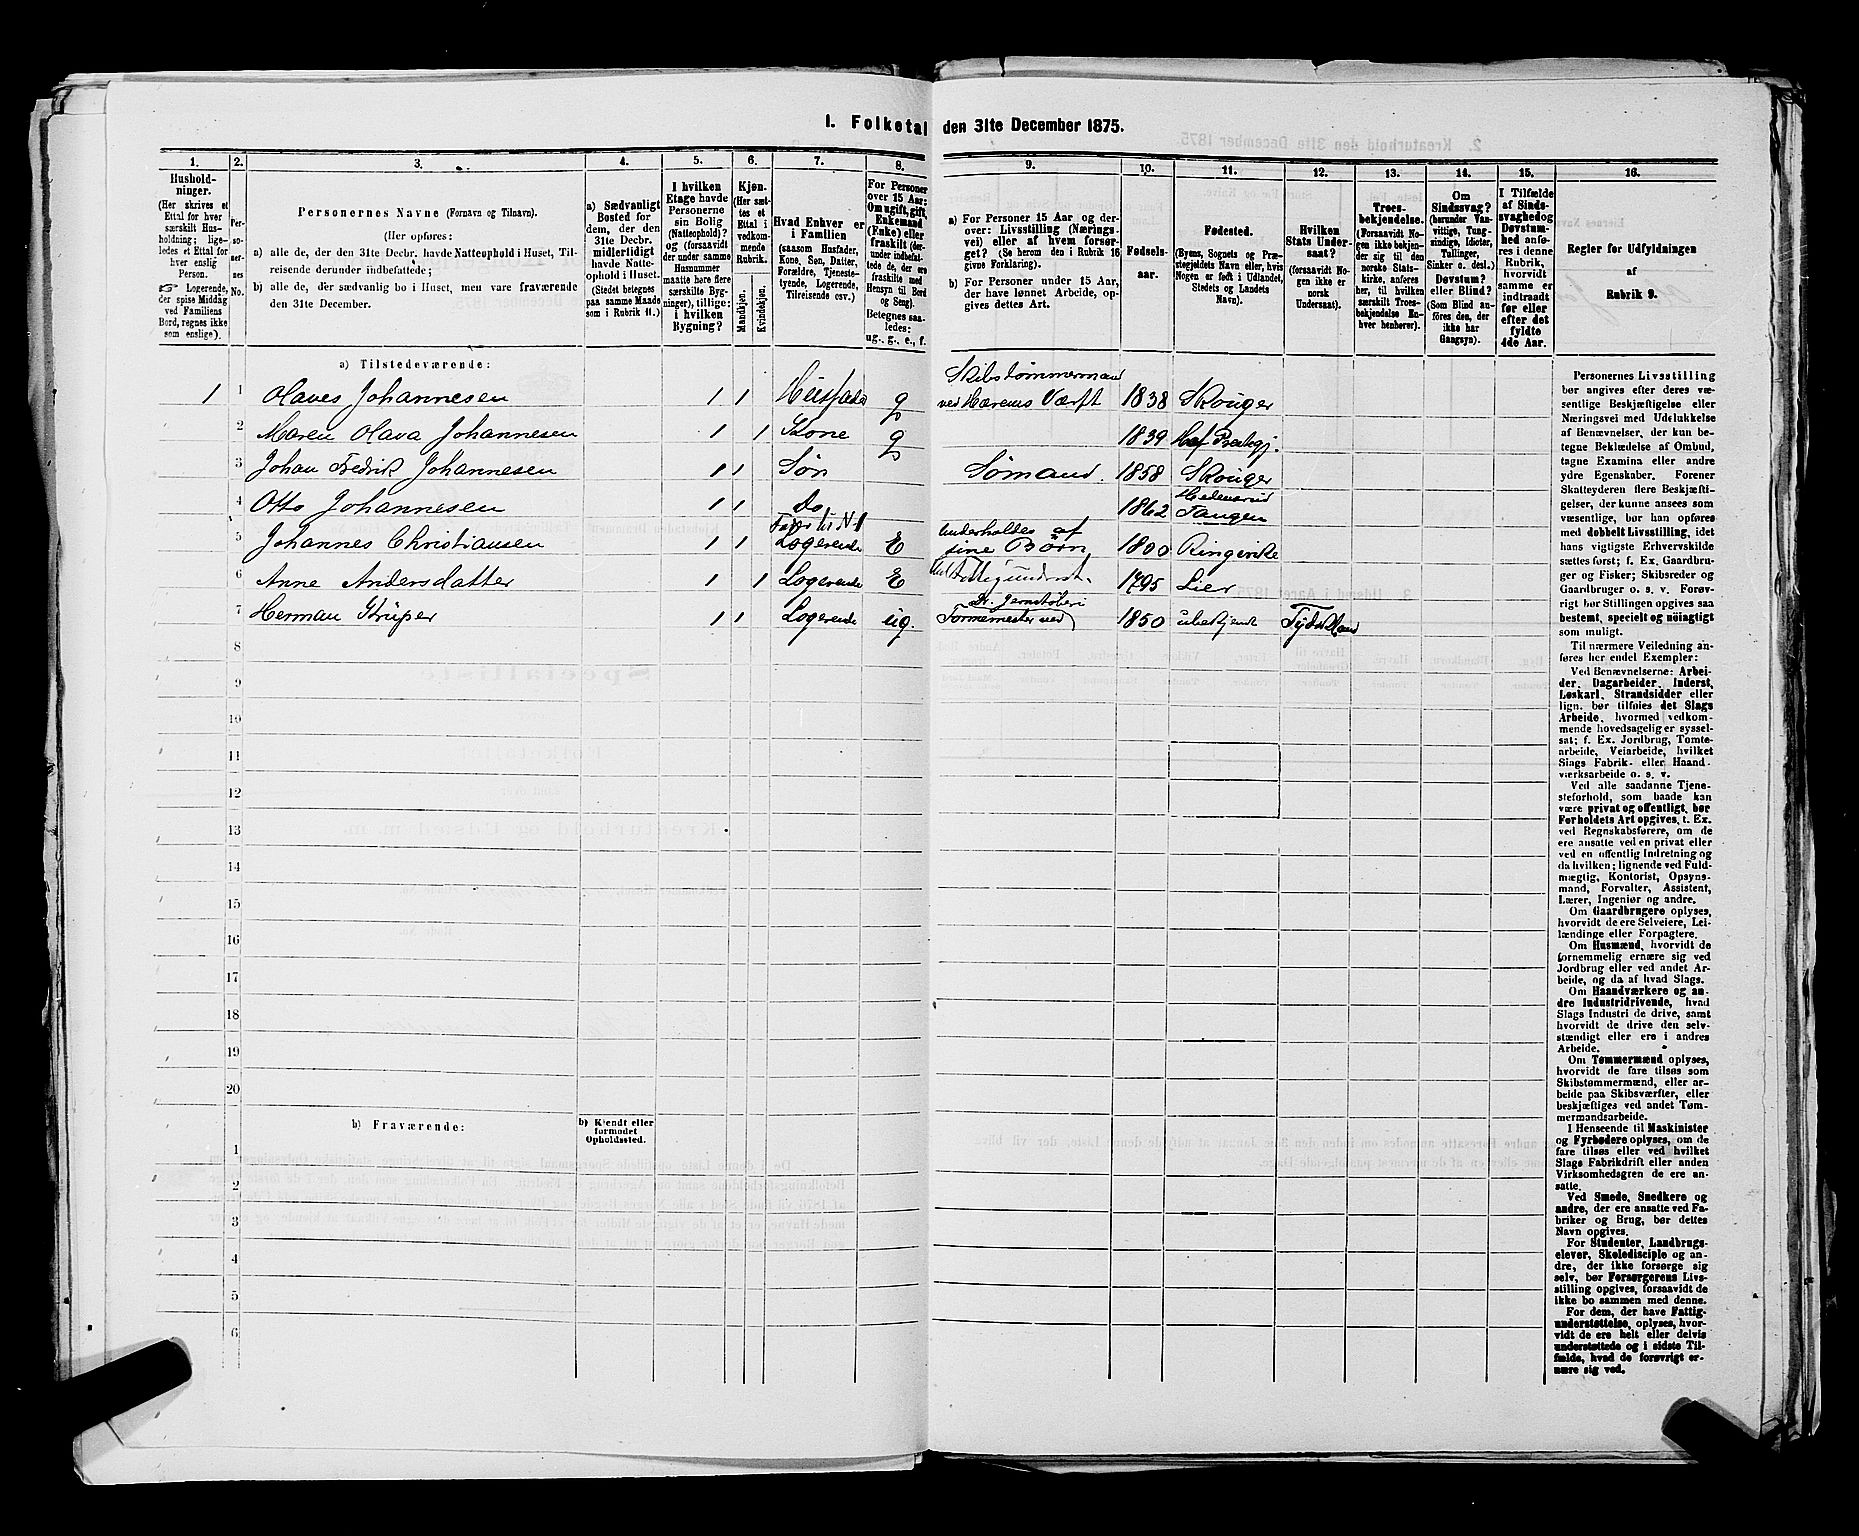 I. Folketal den 31te December 1875.
1. 2. 3. 4. 5. 6. 7. 8. 9. 10. 11. 12. 13. 14. 15. 16.
Hushold-
ninger.
(Her skrives et
Ettal for hver
særskilt Hus-
holdning; lige-
ledes et Ettal for
hver enslig
Person.
Logerende,
der spise Middag
ved Familiens
Bord, regnes ikke
som enslige).
Per-
so-
ner-
nes
No.
Personernes Navne (Fornavn og Tilnavn).
(Her opføres:
a) alle de, der den 31te Decbr. havde Natteophold i Huset, Til-
reisende derunder indbefattede;
b) alle de, der sædvanlig bo i Huset, men vare fraværende
den 31te December.
a) Sædvanligt
Bosted for
dem, der den
31te Decbr.
midlertidigt
havde Natte-
ophold i Huset.
(Stedet betegnes
paa samme Maade
som i Rubrik 11.)
I hvilken
Etage havde
Personerne
sin Bolig
(Natteophold)?
og (forsaavidt
der under samme
Husnummer
maatte høre flere
særskilte Byg-
ninger), tillige:
i hvilken
Bygning?
Kjøn.
(Her sæt-
tes et
Ettal i
vedkom-
mende
Rubrik.
Mandkjøn.
Kvindekjøn.
Hvad Enhver er
i Familien
(saasom Husfader,
Kone, Søn, Datter,
Forældre, Tjeneste-
tyende, Logerende,
Tilreisende osv.)
For Personer
over 15 Aar:
Om ugift, gift,
Enkemand
(Enke) eller
fraskilt (der-
under indbefat-
tede de, der ere
fraskilte med
Hensyn til Bord
og Seng).
Betegnes saa-
ledes:
ug., g., e., f.
a) For Personer 15 Aar og der-
over: Livsstilling (Nærings-
vei) eller af hvem forsør-
get? (Se herom den i Rubrik 16
givne Forklaring).
b) For Personer under 15 Aar,
der have lønnet Arbeide, op-
gives dettes Art.
Fødsels-
aar.
Fødested.
(Byens, Sognets og Præ-
stegjeldets Navn eller, hvis
Nogen er født i Udlandet,
Stedets og Landets
Navn).
Hvilken
Stats Under-
saat?
(forsaavidt No-
gen ikke er
norsk
Undersaat).
Troes-
bekjendelse.
(Forsaavidt No-
gen ikke bekjen-
der sig til den
norske Stats-
kirke, anføres
her, til hvilken
særskilt Troes-
bekjendelse En-
hver henhører).
Om
Sindssvag?
(herunder Van-
vittige, Tung-
sindige, Idioter,
Tullinger,
Sinker o. desl.)
Døvstum?
eller Blind?
(Som Blind an-
føres den, der
ikke har
Gangsyn).
I Tilfælde
af Sinds-
svaghed og
Døvstum-
hed anfø-
res i denne
Rubrik,
hvorvidt
samme er
indtraadt
før eller
efter det
fyldte
4de Aar.
Regler for Udfyldningen
af
Rubrik 9.
a) Tilstedeværende:
1 1 Olaves Johannesen 1 1 Husfader g Skibstømmermand
ved Hærens Værft 1838 Skouger
2 Maren Olava Johannesen 1 1 Kone g 1839 Prestegj.
3 Johan Fredrik Johannesen 1 1 Søn Sømand. 1858 Skouger
4 Otto Johannesen 1 1 Do 1862 Tangen
5 Johannes Christiansen 1 1 Fader til No 1
Logerende E Underholdes af
sine Børn 1800 Ringerike
6 Anne Andersdatter 1 1 Logerende E 1795 Lier
7 Herman Strüper 1 1 Logerende ug. Formemester ved
Dr. Jernstøberi 1850 ubekjendt Tydskland
8
9
10
11
12
13
14
15
16
17
18
19
20
b) Fraværende:
b) Kjendt eller
formodet
Opholdssted.
1
2
3
4
5
6
Personernes Livsstilling
bør angives efter deres væ-
sentlige Beskjæftigelse eller
Næringsvei med Udelukkelse
af Benævnelser, der kun be-
tegne Beklædelse af Ombud,
tagne Examina eller andre
ydre Egenskaber. Forener
Skatteyderen flere Beskjæfti-
gelser, der kunne ansees som
væsentlige, bør han opføres
med dobbelt Livsstilling, idet
hans vigtigste Erhvervskilde
sættes først; f. Ex. Gaardbru-
ger og Fisker; Skibsreder og
Gaardbruger o. s. v. Forøv-
rigt bør Stillingen opgives saa
bestemt, specielt og nøiagtigt
som muligt.
Til nærmere Veiledning an-
føres her endel Exempler:
Ved Benævnelserne: Arbei-
der, Dagarbeider, Inderst,
Løskarl, Strandsidder eller
lign. bør tilføies det Slags
Arbeide, hvormed vedkom-
mende hovedsagelig er syssel-
sat; f. Ex. Jordbrug, Tomte-
arbeide, Veiarbeide, hvilket
Slags Fabrik- eller Haand-
værksarbeide o. s. v.
Ved alle saadanne Tjene-
steforhold, som baade kan
være privat og offentligt, bør
Forholdets Art opgives, t. Ex.
ved Regnskabsførere, om de
ere ansatte ved en privat eller
ved en offentlig Indretning og
da hvilken; lignende ved Fuld-
mægtig, Kontorist, Opsyns-
mand, Forvalter, Assistent,
Lærer, Ingeniør og andre.
Om Gaardbrugere oplyses,
hvorvidt de ere Selveiere, Lei-
lændinge eller Forpagtere.
Om Husmænd, hvorvidt de
fornemmelig ernære sig ved
Jordbrug eller ved andet Ar-
beide, og da af hvad Slags.
Om Haandværkere og an-
dre Industridrivende, hvad
Slags Industri de drive, samt
hvorvidt de drive den selv-
stændigt eller ere i andres
Arbeide.
Om Tømmermænd oplyses,
hvorvidt de fare tilsøs som
Skibstømmermænd, eller ar-
beide paa Skibsværfter, eller
beskjæftiges ved andet Tøm-
mermandsarbeide.
I Henseende til Maskinister
og Fyrbødere oplyses, om de
fare tilsøs eller ved hvilket
Slags Fabrikdrift eller anden
Virksomhedsgren de ere an-
satte.
Ved Smede, Snedkere og
andre, der ere ansatte ved Fa-
briker og Brug, bør dettes
Navn opgives.
For Studenter, Landbrugs-
elever, Skoledisciple og an-
dre, der ikke forsørge sig
selv, bør Forsørgerens Livs-
stilling opgives, forsaavidt de
ikke bo sammen med denne.
For dem, der have Fattig-
understøttelse, oplyses, hvor-
vidt de ere helt eller delvis
understøttede og i sidste Til-
fælde, hvad de forøvrigt er-
nære sig ved.